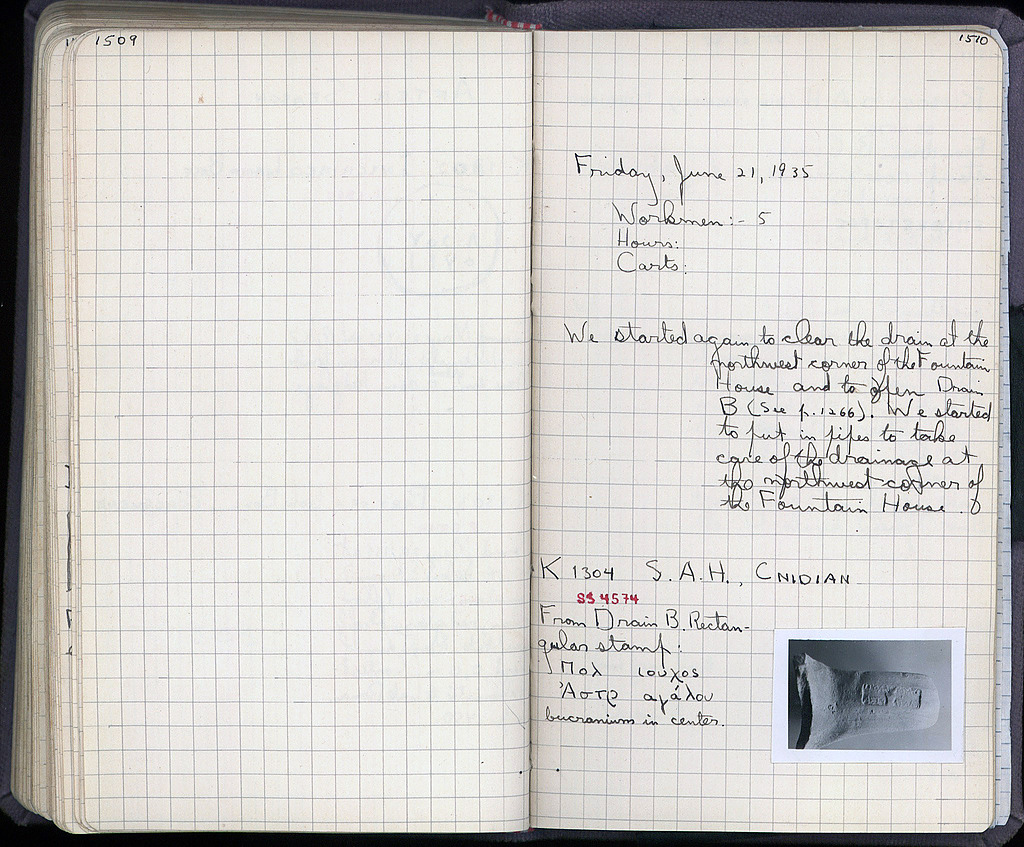 1509
1510
Friday, June 21, 1935
Workmen:- 5
Hours:
Carts:
We started again to clear the drain at the
northwest corner of the Fountain
House and to open Drain
B (See p. 1266). We started
to put in pipes to take
care of the drainage at
the northwest corner of
the Fountain House.
K 1304 S.A.H., CNIDIAN
SS 4574
From Drain B. Rectan-
gular stamp:
Πολ ιουχος
Ἀστρ αγάλου
bucranium in center.